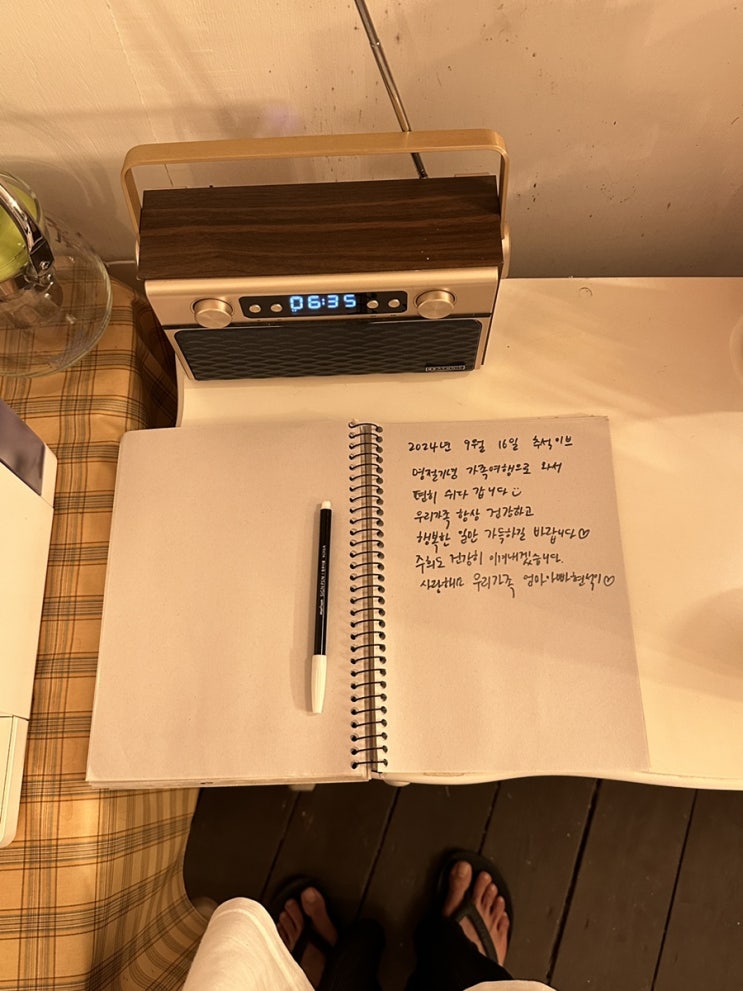 06:35
2024년 9월 16일 추석이브
명절기념 가족여행으로 와서
편히 쉬다 갑니다
우리가족 항상 건강하고
행복한 일만 가득하길 바랍니다♡
주희도 건강히 이겨내겠습니다.
사랑해요 우리가족 엄마아빠현석이♡